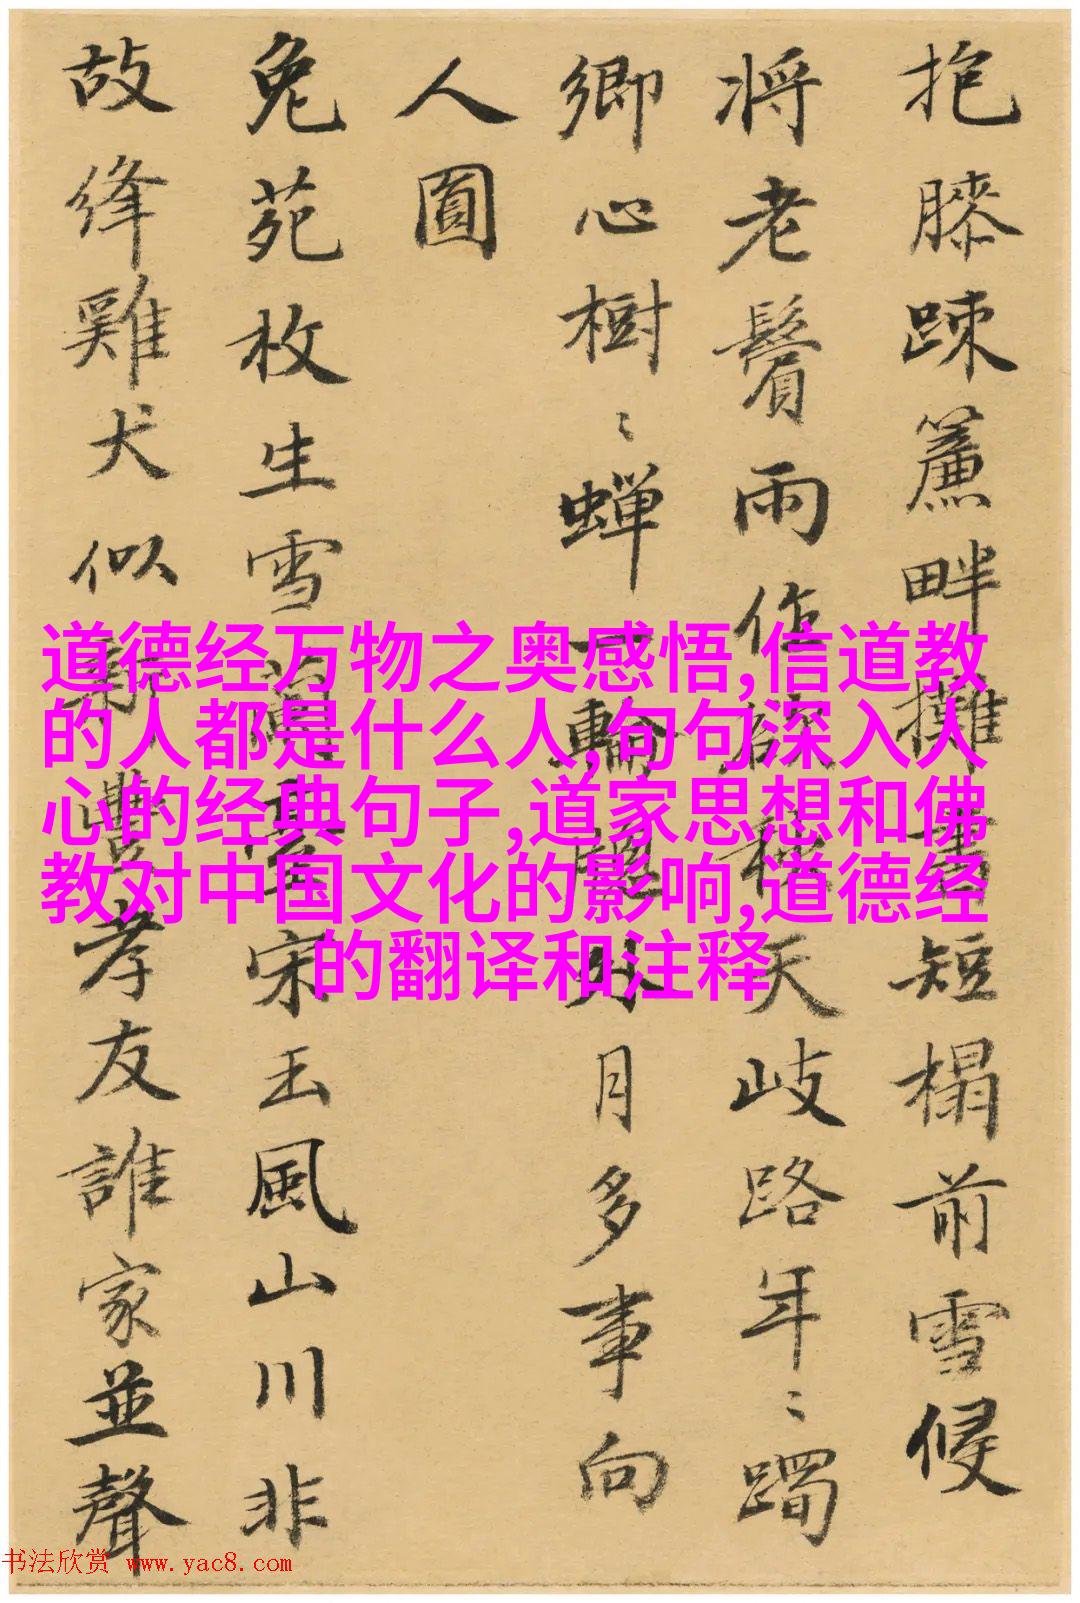 抱膝踈簾畔攤書短榻前雪侵
将老鬢雨作欲穐天岐路年〻躅
鄉心樹〻蟬一輪隄外月多事向
人圓
兔苑枚生雪蘭臺宋玉風山川非
故絳雞犬似新豐孝友誰家並聲
道德经万物之奥感悟,信道教
的人都是什么人,句句深入人
心的经典句子,道家思想和佛
教对中国文化的影响,道德经
的翻译和注释
书法欣赏 www.yac8.com